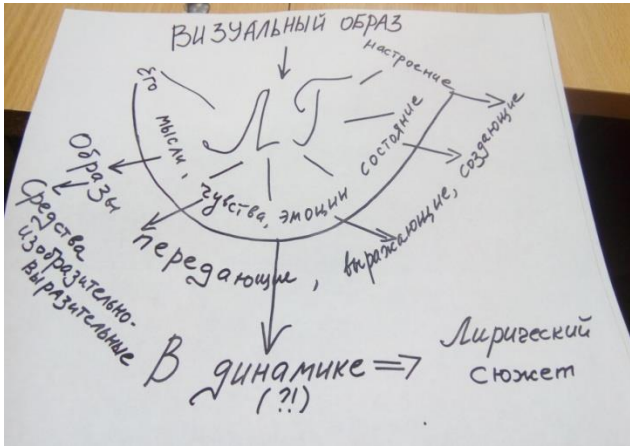 ВИЗУАЛЬНЫЙ ОБРАЗ
ЛГ
Его
мысли,
чувства, эмоции
состояние
настроение
Образы
Средства
изобразительно-
выразительные
передающие,
выражающие, создающие
В динамике => Лирический
сюжет
(?!)